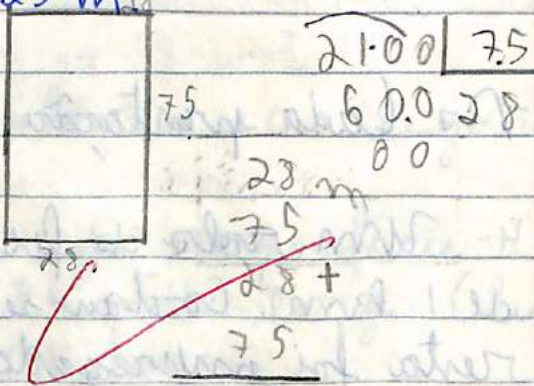 21.00 7.5
75 60.0 28
00
28 m
75
28 28 +
75